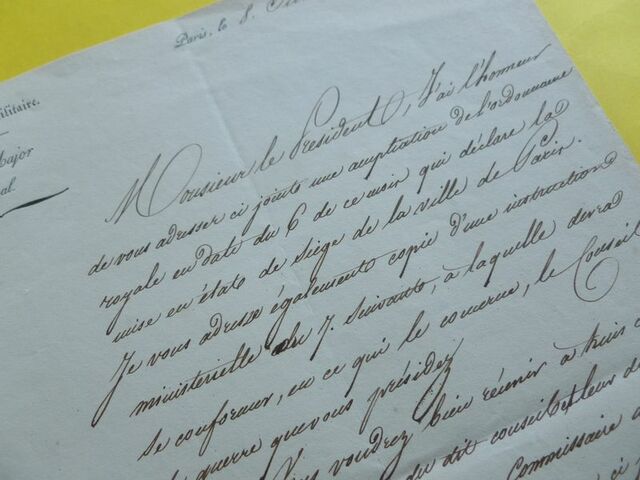 Paris, le 8.
ilitaire.
ajor
al.
Monsieur le Président, J'ai l'honneur
de vous adresser ci jointe une ampliation de l'ordonnance
royale en date du 6 de ce mois qui déclare la
mise en état de siège de la ville de Paris.
Je vous adresse également copie d'une instruction
ministerielle du 7. Suivante, à laquelle devra
se conformer, en ce qui le concerne, le Conseil
guerre que vous présidez
vous voudrez bien réunir à huis c
du dit conseil et leur d
Commissaire